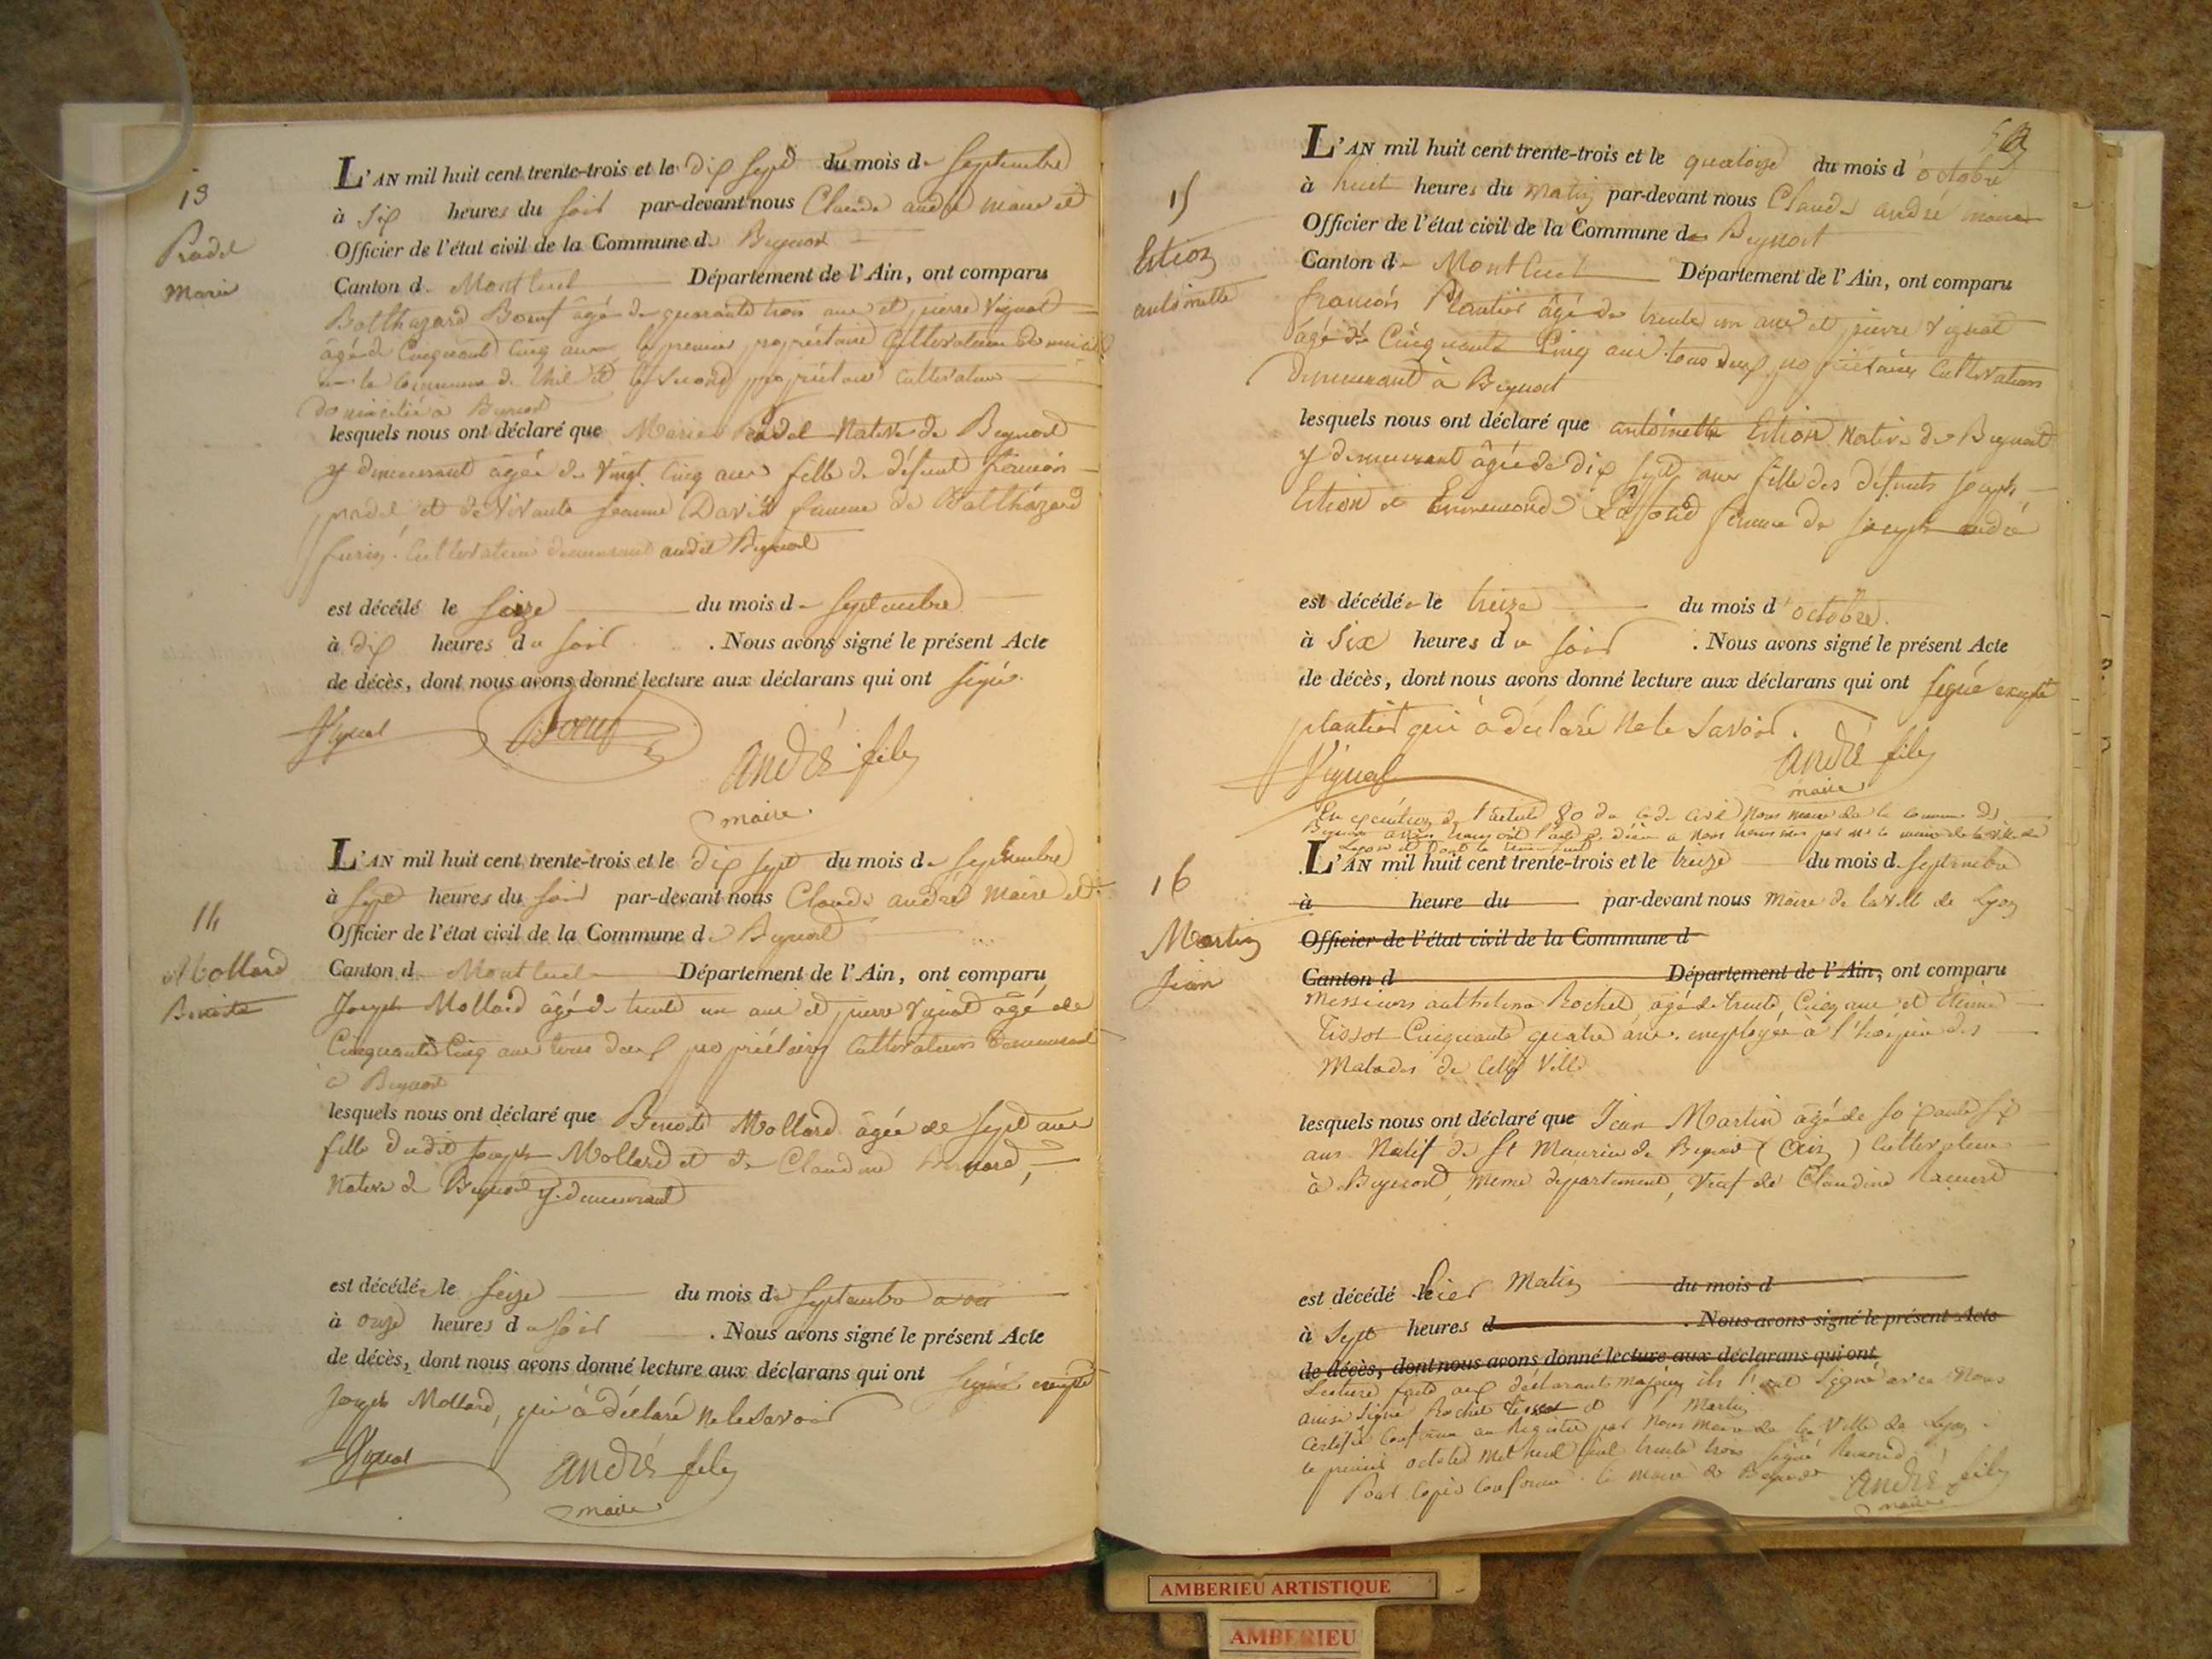 13
Pradel
Marie
L'AN mil huit cent trente-trois et le dix sept du mois de septembre
à six heures du soir par-devant nous Claude andré maire et
Officier de l'état civil de la Commune de Beynost
Canton de Montluel Département de l'Ain, ont comparu
Balthazard Boeuf âgé de quarante trois ans et pierre Vignat
âgé de Cinquante Cinq ans le premier propriétaire Cultivateur domicilié
la Commune de thil et le second propriétaire Cultivateur
domicilié à Beynost
lesquels nous ont déclaré que Marie Pradel Native de Beynost
y demeurant âgée de Vingt Cinq ans fille de défunt françois
pradel et de Vivante Jeanne David femme de Balthazard
Cultivateur demeurant audit Beynost
est décédé le seize du mois de septembre
à dix heures du soir . Nous avons signé le présent Acte
de décès, dont nous avons donné lecture aux déclarans qui ont signé
Vignat Boeuf
andré fils
maire
14
Mollard
Benoite
L'AN mil huit cent trente-trois et le dix sept du mois de septembre
à sept heures du soir par-devant nous Claude andré Maire et
Officier de l'état civil de la Commune de Beynost
Canton de Montluel Département de l'Ain, ont comparu
Joseph Mollard âgé de trente un ans et pierre Vignat âgé de
Cinquante Cinq ans tous deux propriétaires Cultivateurs demeurant
à Beynost
lesquels nous ont déclaré que Benoite Mollard âgée de sept ans
fille dudit Joseph Mollard et de Claudine
Native de Beynost y demeurant
est décédée le seize du mois de septembre
à onze heures du soir . Nous avons signé le présent Acte
de décès, dont nous avons donné lecture aux déclarans qui ont signé excepté
Joseph Mollard, qui à déclaré ne le savoir
Vignat andré fils
maire
15
Estion
antoinette
L'AN mil huit cent trente-trois et le quatorze du mois d'octobre
à huit heures du matin par-devant nous Claude andré maire
Officier de l'état civil de la Commune de Beynost
Canton de Montluel Département de l'Ain, ont comparu
françois Plantier âgé de trente un ans et pierre Vignat
âgé de Cinquante Cinq ans tous deux propriétaires Cultivateurs
Demeurant à Beynost
lesquels nous ont déclaré que antoinette Estion Native de Beynost
y demeurant âgée de dix sept ans fille des défunts Joseph
Estion et femme de Joseph andré
est décédée le treize du mois d'octobre
à Six heures du soir . Nous avons signé le présent Acte
de décès, dont nous avons donné lecture aux déclarans qui ont signé excepté
plantier qui à déclaré ne le Savoir.
Vignat andré fils
maire
En exécution de l'article 80 du Code Civil Nous maire de la commune de
Beynost avons transcrit l'acte de décès à Nous transmis par Mr le maire de la ville de
Lyon et dont la teneur suit
16
Martin
Jean
L'AN mil huit cent trente-trois et le treize du mois de septembre
à heure du par-devant nous Maire de la ville de Lyon
Officier de l'état civil de la Commune d
Canton d Département de l'Ain, ont comparu
Messieurs anthelme Rochet âgé de trente Cinq ans et Etienne
Tissot Cinquante quatre ans employés à l'hospice des
Malades de Cette Ville
lesquels nous ont déclaré que Jean Martin âgé de soixante six
ans Natif de St Maurice de Beynost (ain) Cultivateur
à Beynost, même département, Veuf de Claudine
est décédé hier Matin du mois d
à Sept heures d . Nous avons signé le présent Acte
de décès, dont nous avons donné lecture aux déclarans qui ont
Lecture faite aux déclarants majeurs ils l'ont Signé avec Nous
ainsi signé Rochet tissot et Martin
Certifié Conforme au Registre par Nous maire de la Ville de Lyon
le premier octobre mil huit cent trente trois signé
Pour Copie Conforme le maire de Beynost andré fils
maire
AMBERIEU ARTISTIQUE
AMBERIEU